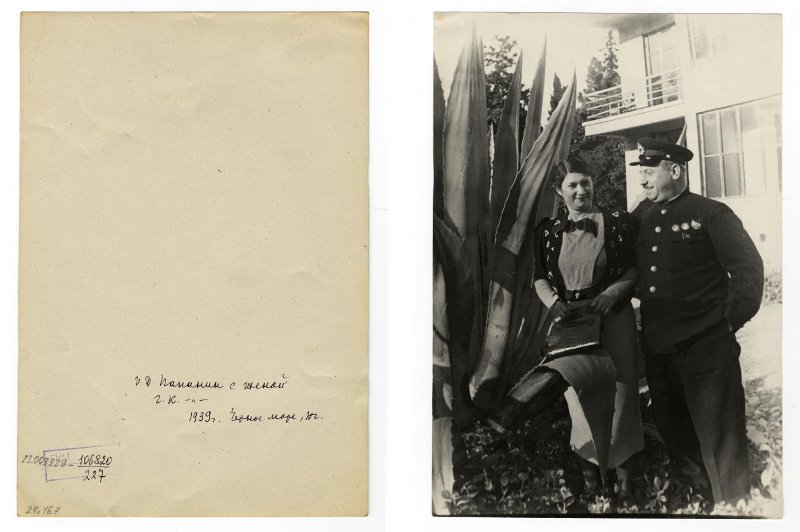 И Д. Папанин с женой
Г. К. -"-
1939г. Черное море, Юг.
106820
227